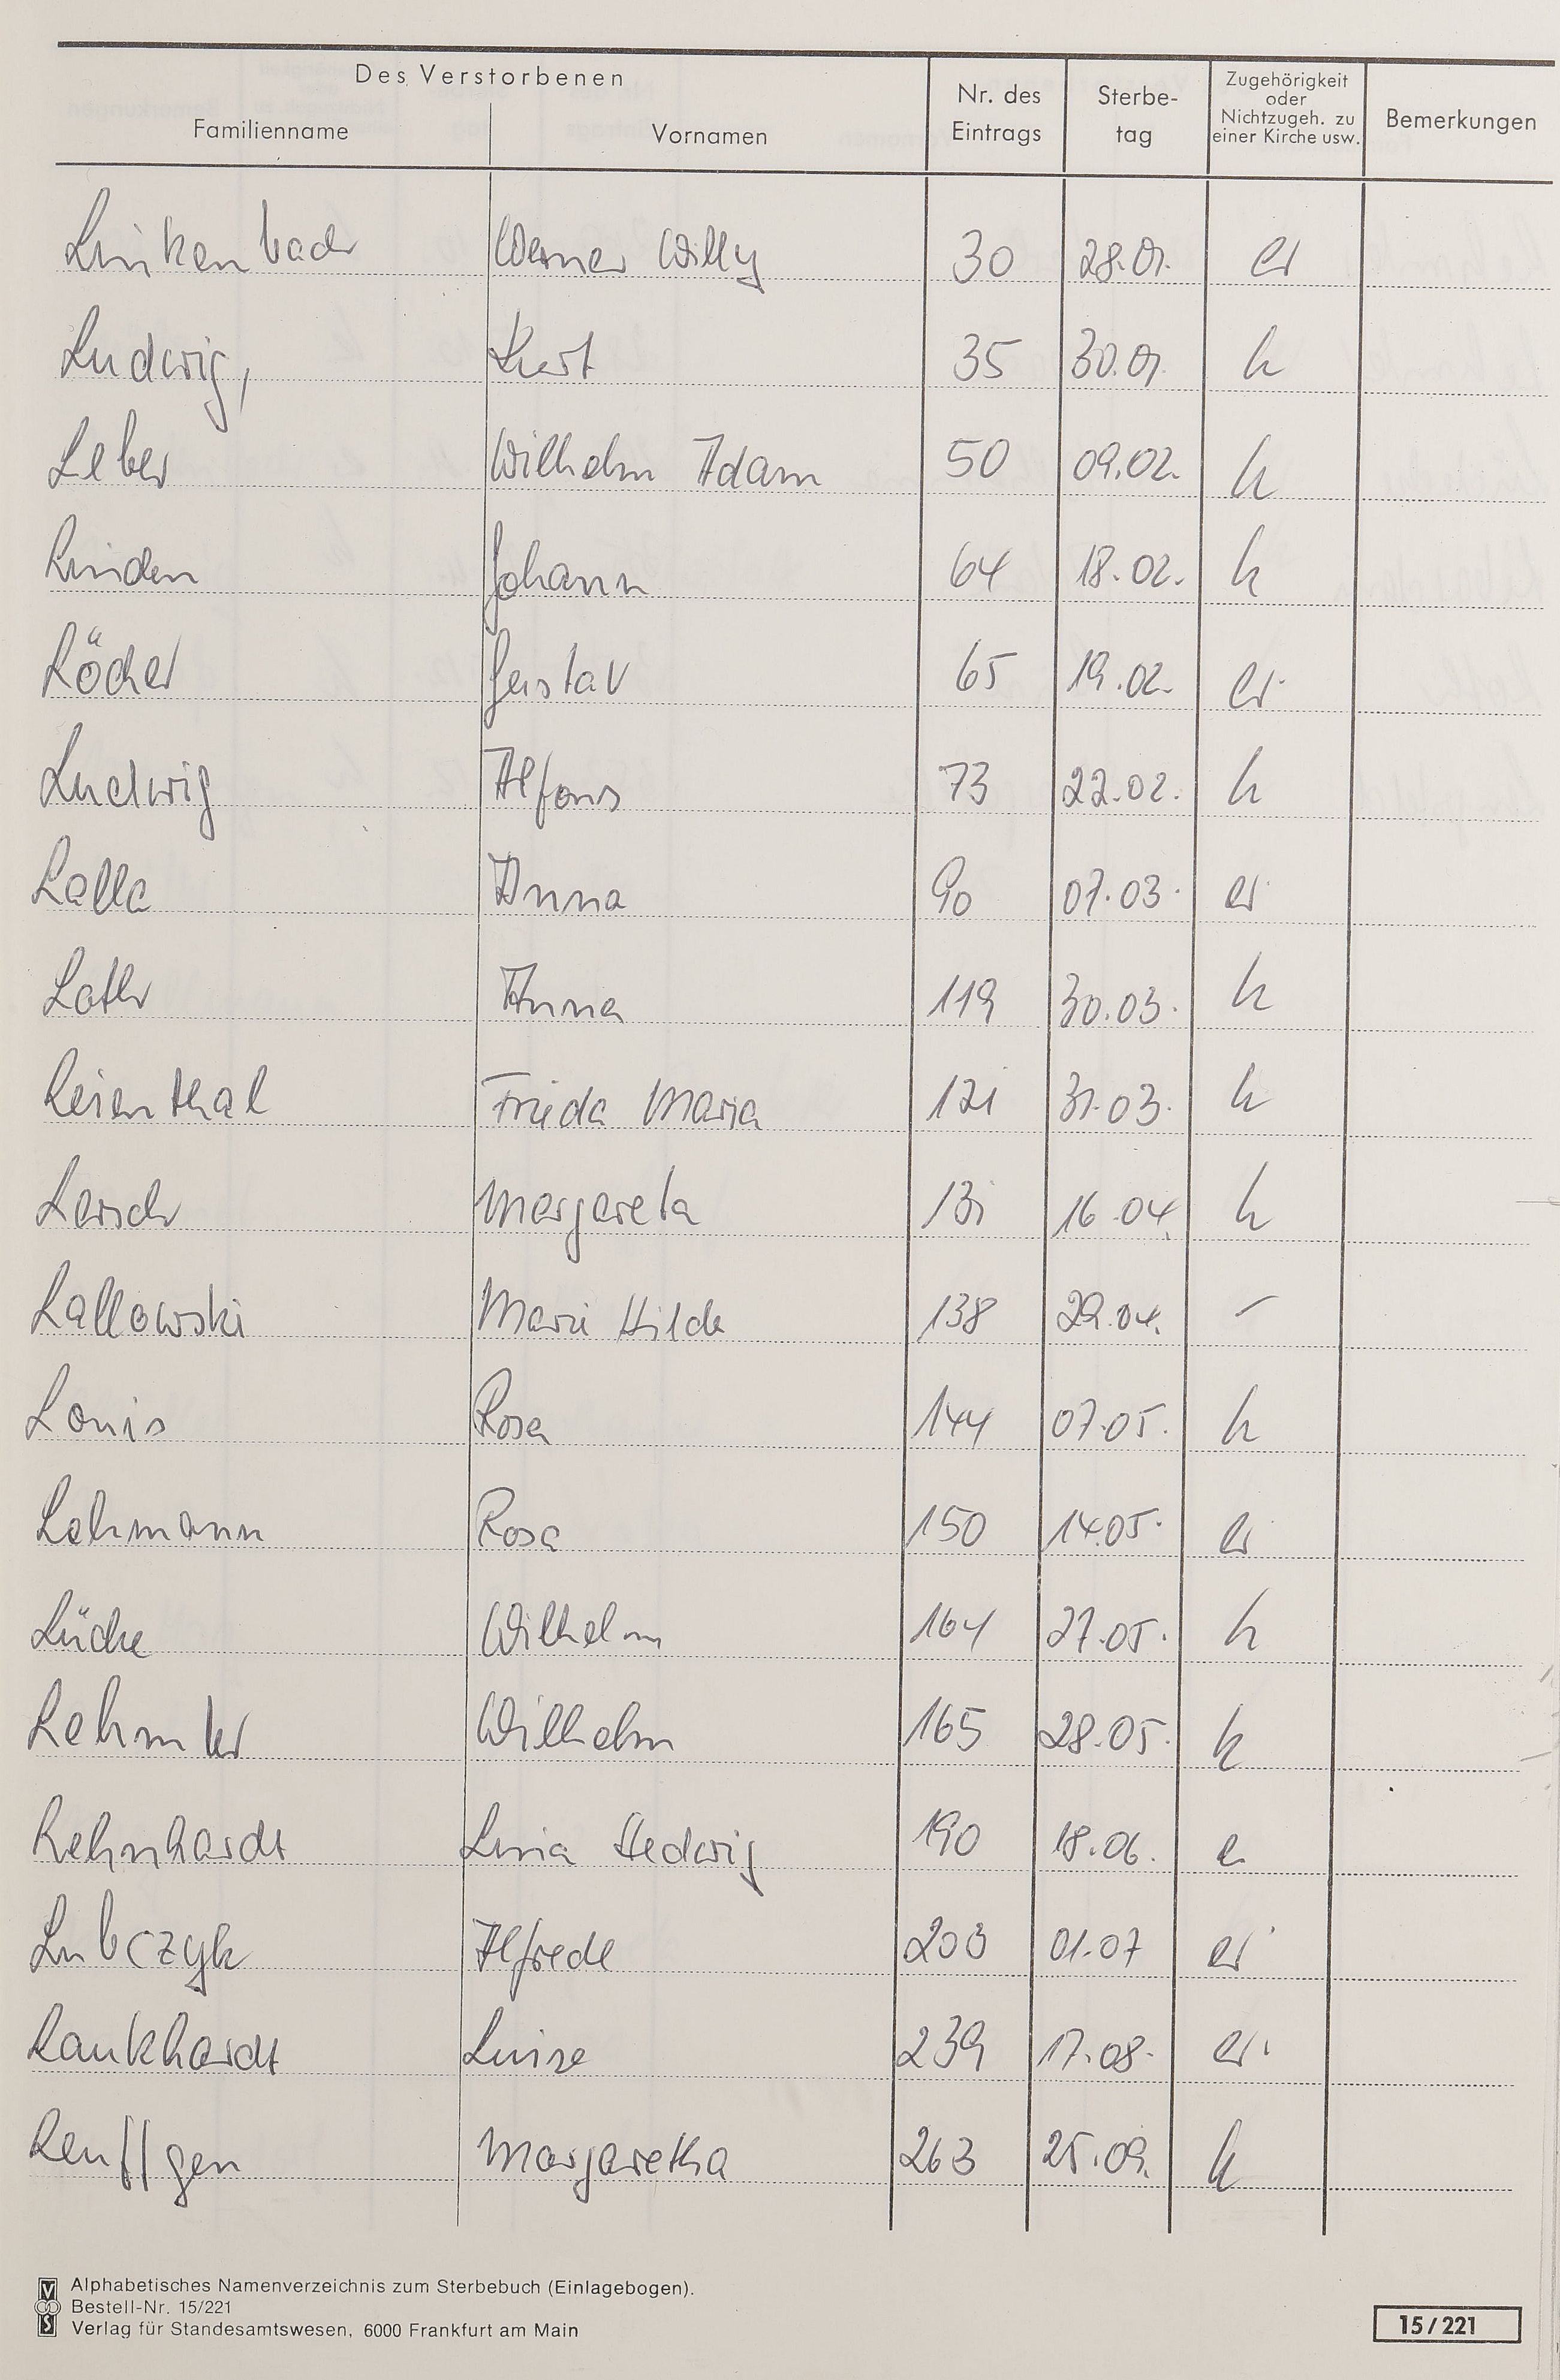 Des Verstorbenen
Familienname Vornamen Nr. des Eintrags Sterbe-tag Zugehörigkeit oder Nichtzugeh. zu einer Kirche usw. Bemerkungen
Linkenbach Werner Willy 30 28.01. ev
Ludwig, Kurt 35 30.01. k
Leber Wilhelm Adam 50 09.02. k
Linden Johann 64 18.02. k
Löcher Gustav 65 19.02. ev.
Ludwig Alfons 73 22.02. k
Lalla Anna 90 07.03. ev.
Loth Anna 119 30.03. k
Leienthal Frieda Maria 121 31.03. k
Lersch Margareta 131 16.04. k
Lallowski Marie Hilde 138 29.04. –
Louis Rosa 144 07.05. k
Lehmann Rosa 150 14.05. ev
Lücke Wilhelm 164 27.05. k
Lehmler Wilhelm 165 28.05. k
Lehnhardt Lina Hedwig 190 18.06. e.
Lubczyk Alfrede 203 01.07 ev.
Laukhardt Luise 239 17.08. ev.
Leuffgen Margaretha 263 25.09. k
Alphabetisches Namenverzeichnis zum Sterbebuch (Einlagebogen).
Bestell-Nr. 15/221
Verlag für Standesamtswesen, 6000 Frankfurt am Main
15/221